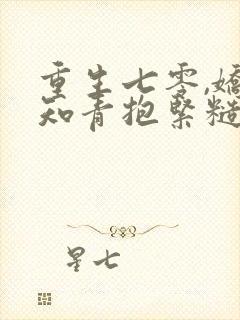 重生七零,娇
知青抱紧糙
星七